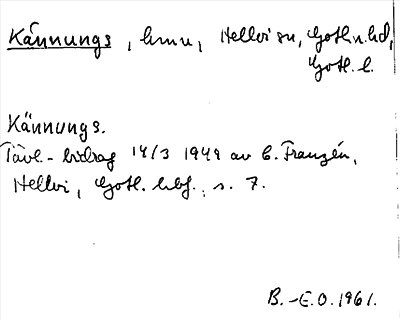 Kännungs, hmn, Hellvi sn, Gotl. n. hd,
Gotl. l.
Kännungs.
Tävl.-bidrag 14/3 1949 av C. Franzén,
Hellvi, Gotl. hbf., s. 7.
B.-E.O. 1961.